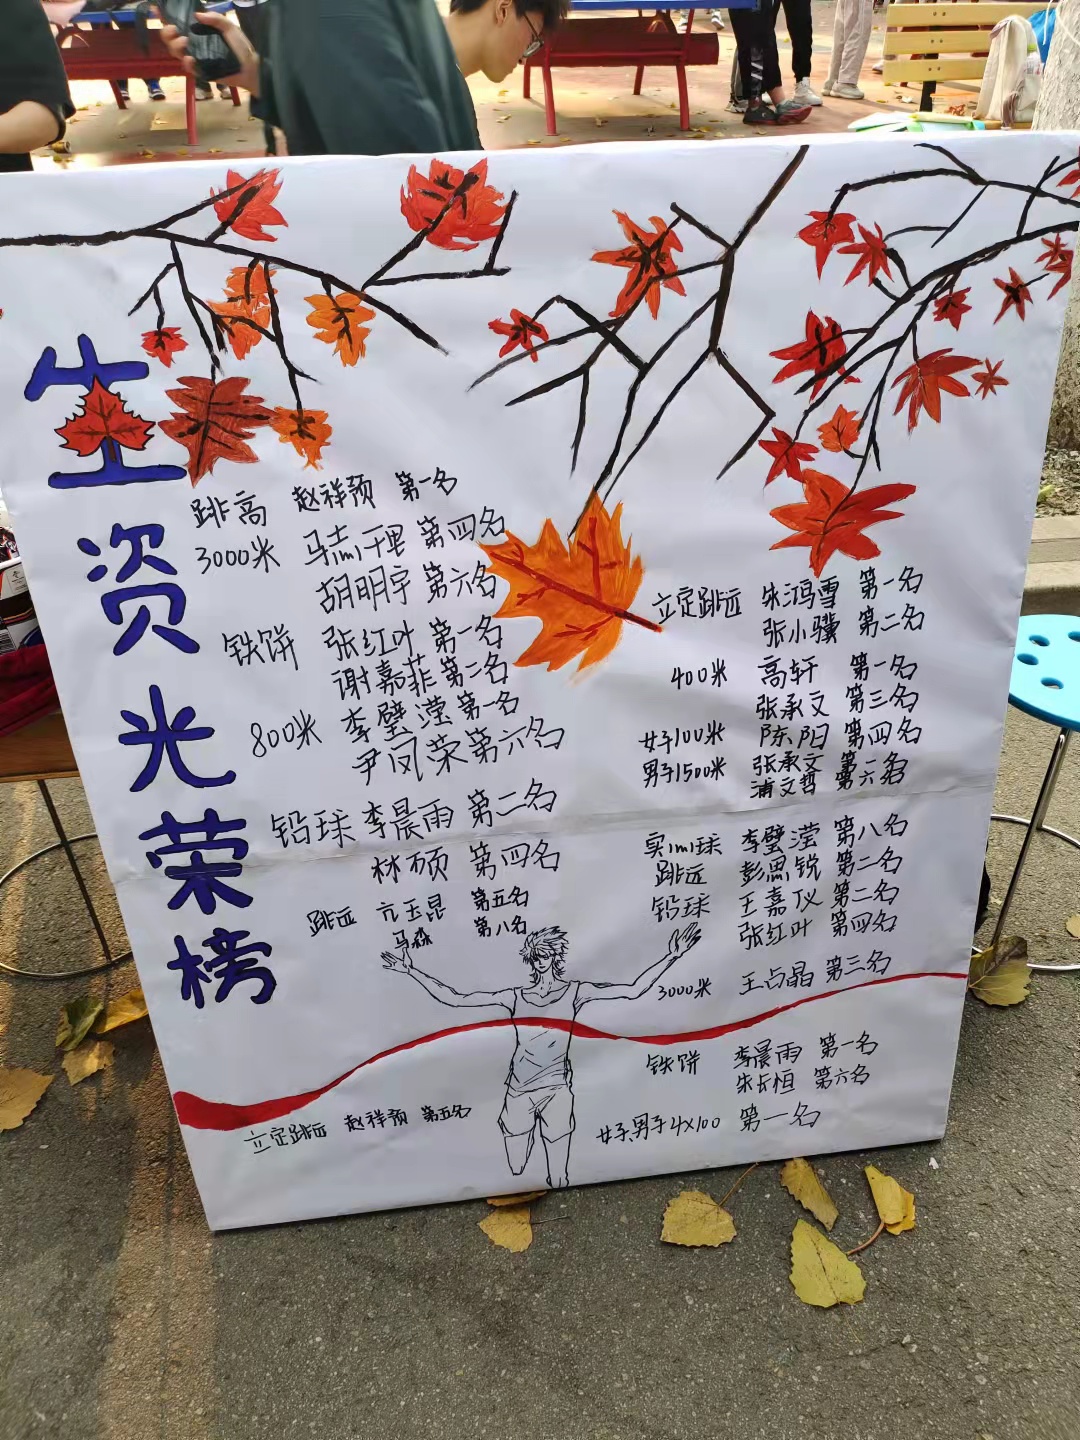 生资光荣榜
跳高 赵祥预 第一名
3000米 马志千里 第四名
胡明宇 第六名
铁饼 张红叶 第一名
谢嘉菲 第二名
800米 李璧滢 第一名
尹凤荣 第六名
铅球 李晨雨 第二名
林硕 第四名
跳远 亢玉昆 第五名
马森 第八名
立定跳远 赵祥预 第五名
立定跳远 朱鸿雪 第一名
张小骥 第二名
400米 高轩 第一名
张承文 第三名
女子100米 陈阳 第四名
男子1500米 张承文 第二名
浦文哲 第六名
实心球 李璧滢 第八名
跳远 彭思锐 第二名
铅球 王嘉仪 第二名
张红叶 第四名
3000米 王占晶 第三名
铁饼 李晨雨 第一名
朱长恒 第六名
女子、男子4×100 第一名